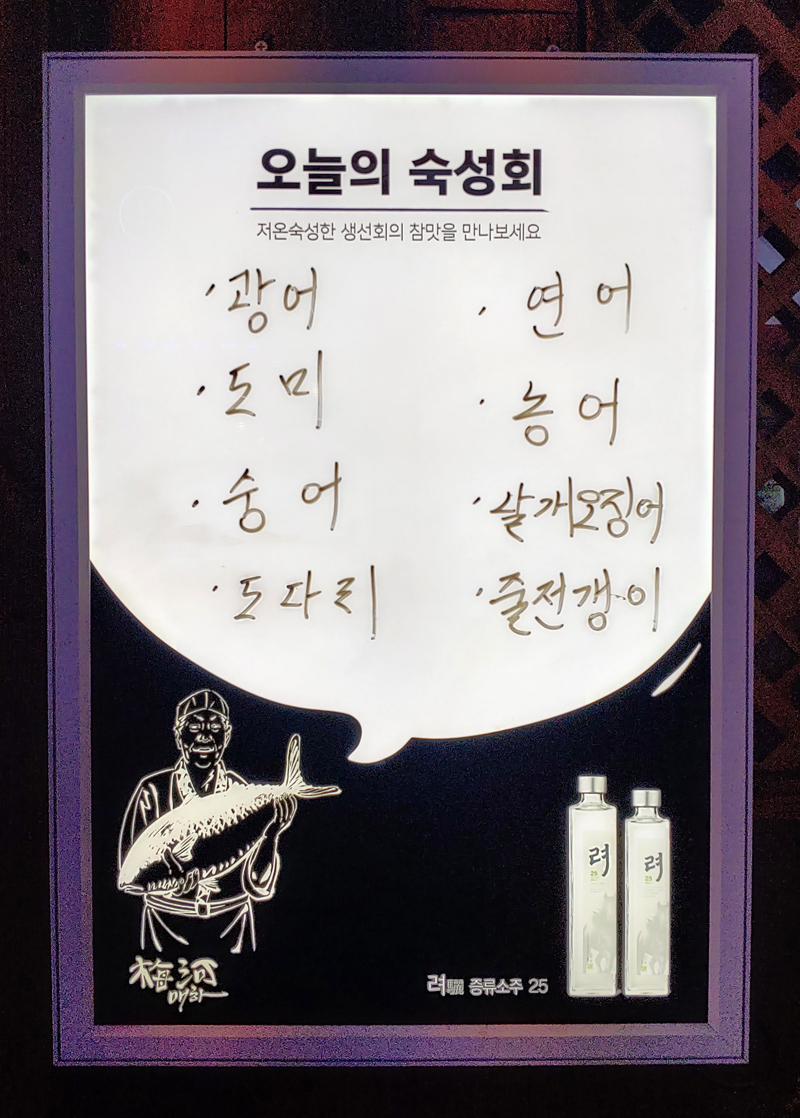 오늘의 숙성회
저온숙성한 생선회의 참맛을 만나보세요
· 광어
· 도미
· 숭어
· 도다리
· 연어
· 농어
· 살개오징어
· 줄전갱이
梅河
매하
려 25
려 25
려驪 증류소주 25